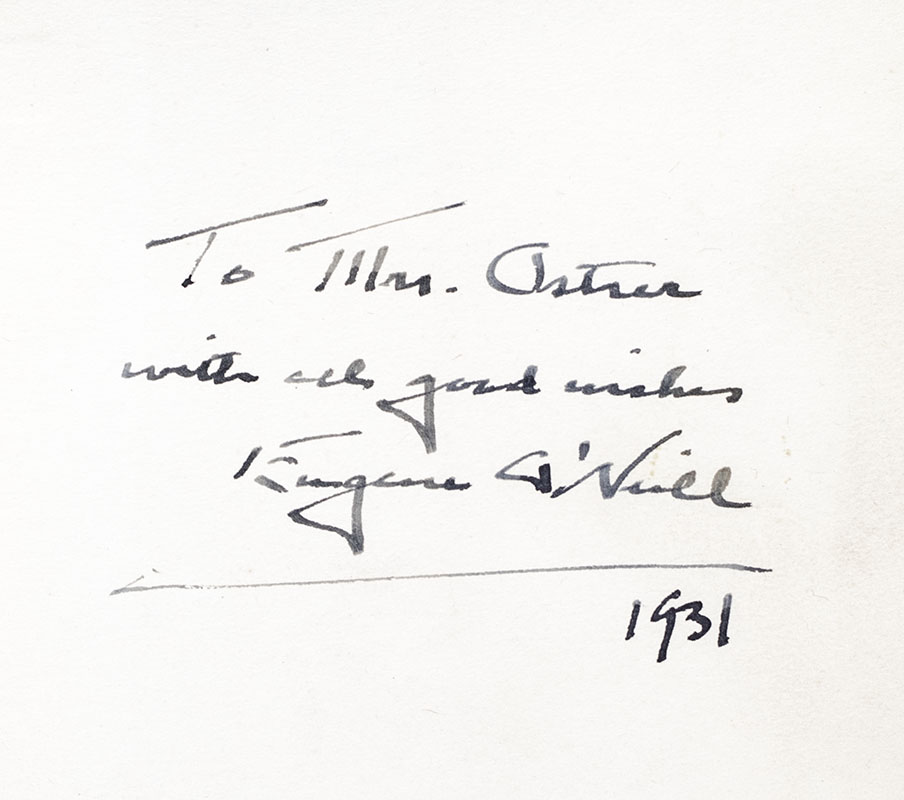 To Mrs. Ostrer
with all good wishes
Eugene O'Neill
1931